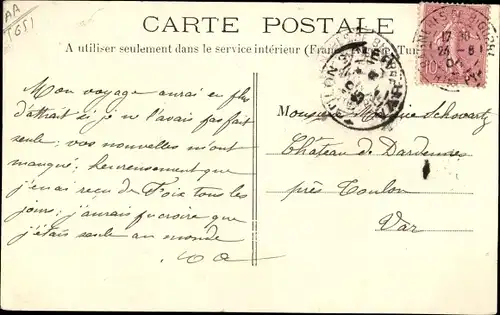 AA
1651
CARTE POSTALE
A utiliser seulement dans le service intérieur (France,
Mon voyage aurai eu plus
d'attrait si je ne l'avais pas fait
seule; vos nouvelles m'ont
manqué; heureusement que
j'en ai reçu de Foix tous les
jours; j'aurais pu croire que
j'étais seule au monde
Monsieur Maurice Schwartz
Château de Dardennes
près Toulon
Var